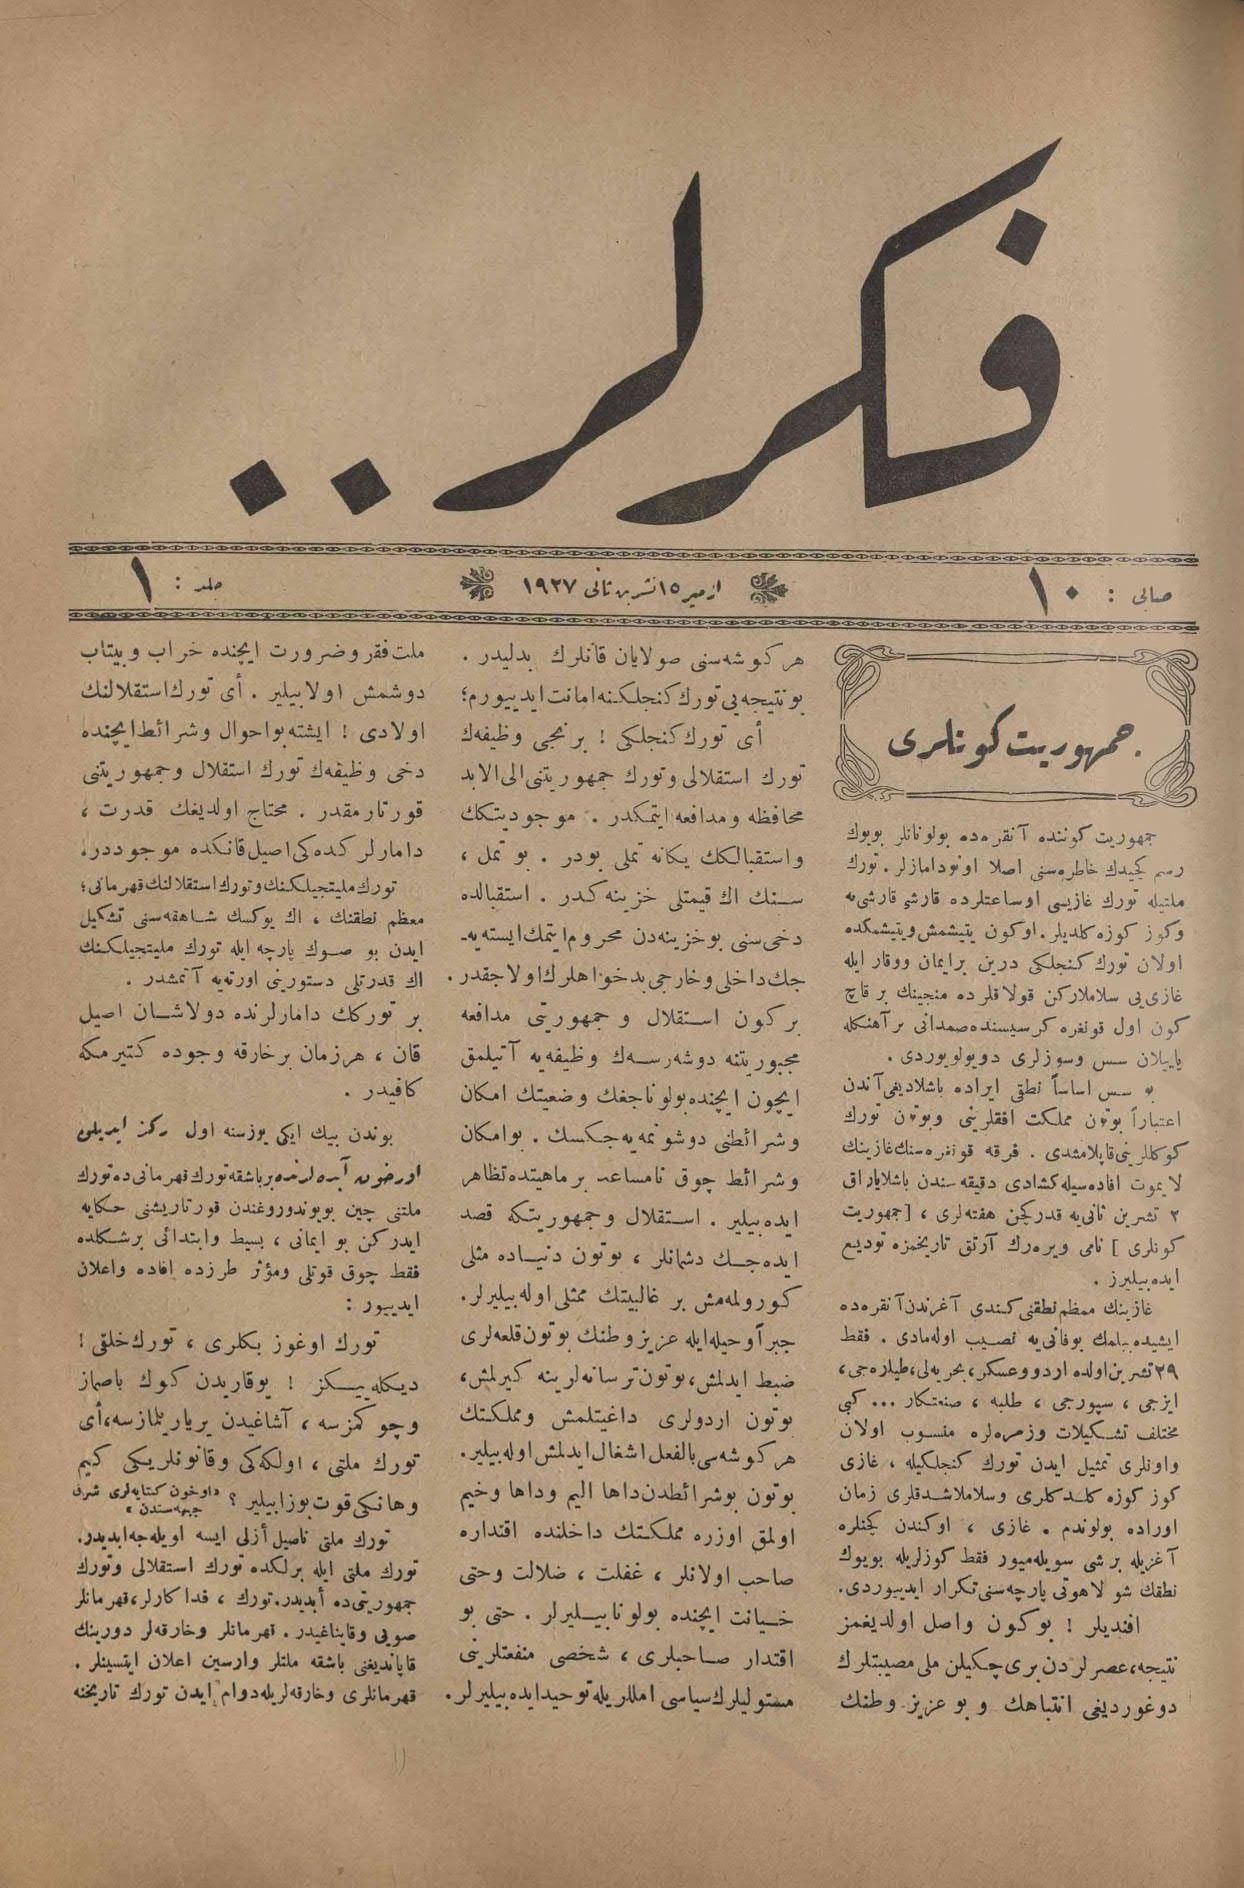 فكرلر..
صايى : ١٠
ازمير ١٥ تشرين ثانى ١٩٢٧
جلد : ١
جمهوريت كونلرى
جمهوريت كوننده آنقره‌ده بولونانلر بويوك
رسم كچيدك خاطره‌سنى اصلا اونودامازلر. تورك
ملتيله تورك غازيسى اوساعتلرده قارشى قارشى‌يه
وكوز كوزه كلديلر. اوكون يتيشمش ويتيشمكده
اولان تورك كنجلكى درين برايمان ووقار ايله
غازى‌يى سلاملاركن قولاقلرده منجينك بر قاچ
كون اول قونغره كرسيسنده صمدانى بر آهنكله
ياييلان سس وسوزلرى دويولويوردى.
بو سس اساساً نطقى ايراده باشلاديغى آندن
اعتباراً بوتون مملكت افقلرينى وبوتون تورك
كوكللرينى قاپلامشدى. فرقه قونغره‌سنك غازينك
لايموت افاده‌سيله كشادى دقيقه‌سندن باشلاياراق
٢ تشرين ثانى‌يه قدر كچن هفته‌لرى ، [جمهوريت
كونلرى ] نامى ويره‌رك آرتق تاريخمزه توديع
ايده بيليرز .
غازينك معظم نطقنى كندى آغزندن آنقره‌ده
ايشيده بيلمك بوفانى‌يه نصيب اوله‌مادى. فقط
٢٩ تشرين اولده اردو وعسكر، بحريه‌لى، طياره‌جى،
ايزجى ، سپورجى ، طلبه ، صنعتكار ... كبى
مختلف تشكيلات وزمره‌لره منسوب اولان
واونلرى تمثيل ايدن تورك كنجلكيله ، غازى
كوز كوزه كلدكلرى وسلاملاشدقلرى زمان
اوراده بولوندم . غازى ، اوكندن كچنلره
آغزيله بر شى سويله‌ميور فقط كوزلريله بويوك
نطقك شو لاهوتى پارچه‌سنى تكرار ايدييوردى.
افنديلر ! بوكون واصل اولديغمز
نتيجه، عصرلردن برى چكيلن ملى مصيبتلرك
دوغورديغى انتباهك و بو عزيز وطنك
هر كوشه‌سنى صولايان قانلرك بدليدر .
بو نتيجه‌يى تورك كنجلكنه امانت ايدييورم؛
أى تورك كنجلكى ! برنجى وظيفه‌ك
تورك استقلالى وتورك جمهوريتنى الى الابد
محافظه ومدافعه ايتمكدر . موجوديتكك
واستقبالكك يكانه تملى بودر . بو تمل ،
سنك اك قيمتلى خزينه كدر . استقبالده
دخى سنى بو خزينه‌دن محروم ايتمك ايسته‌يه-
جك داخلى وخارجى بدخواهلرك اولاجقدر.
بر كون استقلال و جمهوريتى مدافعه
مجبوريتنه دوشه‌رسه‌ك وظيفه‌يه آتيلمق
ايچون ايچنده بولوناجغك وضعيتك امكان
وشرائطنى دوشونمه‌يه‌جكسك . بو امكان
وشرائط چوق نامساعد بر ماهيتده تظاهر
ايده بيلير . استقلال وجمهوريتكه قصد
ايده‌جك دشمانلر ، بوتون دنياده مثلى
كورولمه‌مش بر غالبيتك ممثلى اوله بيليرلر.
جبراً وحيله ايله عزيز وطنك بوتون قلعه‌لرى
ضبط ايدلمش، بوتون ترسانه‌لرينه كيرلمش،
بوتون اردولرى داغيتلمش ومملكتك
هر كوشه‌سى بالفعل اشغال ايدلمش اوله بيلير.
بوتون بو شرائطدن داها اليم وداها وخيم
اولمق اوزره مملكتك داخلنده اقتداره
صاحب اولانلر ، غفلت ، ضلالت وحتى
خيانت ايچنده بولونا بيليرلر . حتى بو
اقتدار صاحبلرى ، شخصى منفعتلرينى
مستوليلرك سياسى امللريله توحيد ايده بيليرلر.
ملت فقر وضرورت ايچنده خراب وبيتاب
دوشمش اولابيلير . أى تورك استقلالنك
اولادى ! ايشته بو احوال وشرائط ايچنده
دخى وظيفه‌ك تورك استقلال وجمهوريتنى
قورتارمقدر . محتاج اولديغك قدرت ،
دامارلركده‌كى اصيل قانكده موجوددر.
تورك مليتجيلكنك وتورك استقلالنك قهرمانى؛
معظم نطقنك ، اك يوكسك شاهقه‌سنى تشكيل
ايدن بو صوك پارچه ايله تورك مليتجيلكنك
اك قدرتلى دستورينى اورته‌يه آتمشدر .
بر توركك دامارلرنده دولاشان اصيل
قان ، هر زمان بر خارقه وجوده كتيرمكه
كافيدر .
بوندن بيك ايكى يوز سنه اول ركز ايديلن
اورخون آبده‌لرنده بر باشقه تورك قهرمانى ده تورك
ملتنى چين بويوندوروغندن قورتاريشنى حكايه
ايدركن بو ايمانى ، بسيط وابتدائى بر شكلده
فقط چوق قوتلى ومؤثر طرزده افاده واعلان
ايدييور :
تورك اوغوز بكلرى ، تورك خلقى !
ديكله‌ييكز ! يوقاريدن كوك باصماز
وچوكمزسه ، آشاغيدن ير ياريلمازسه، أى
تورك ملتى ، اولكه‌كى وقانونلريكى كيم
وهانكى قوت بوزابيلير ؟ «اوخون كتابه‌لرى شرق
جبهه‌سندن»
تورك ملتى ناصيل أزلى ايسه اويله‌جه ابديدر.
تورك ملتى ايله برلكده تورك استقلالى وتورك
جمهوريتى ده أبديدر. تورك ، فداكارلر، قهرمانلر
صويى وقايناغيدر. قهرمانلر وخارقه‌لر دورينك
قاپانديغنى باشقه ملتلر وارسين اعلان ايتسينلر .
قهرمانلرى وخارقه‌لريله دوام ايدن تورك تاريخنه